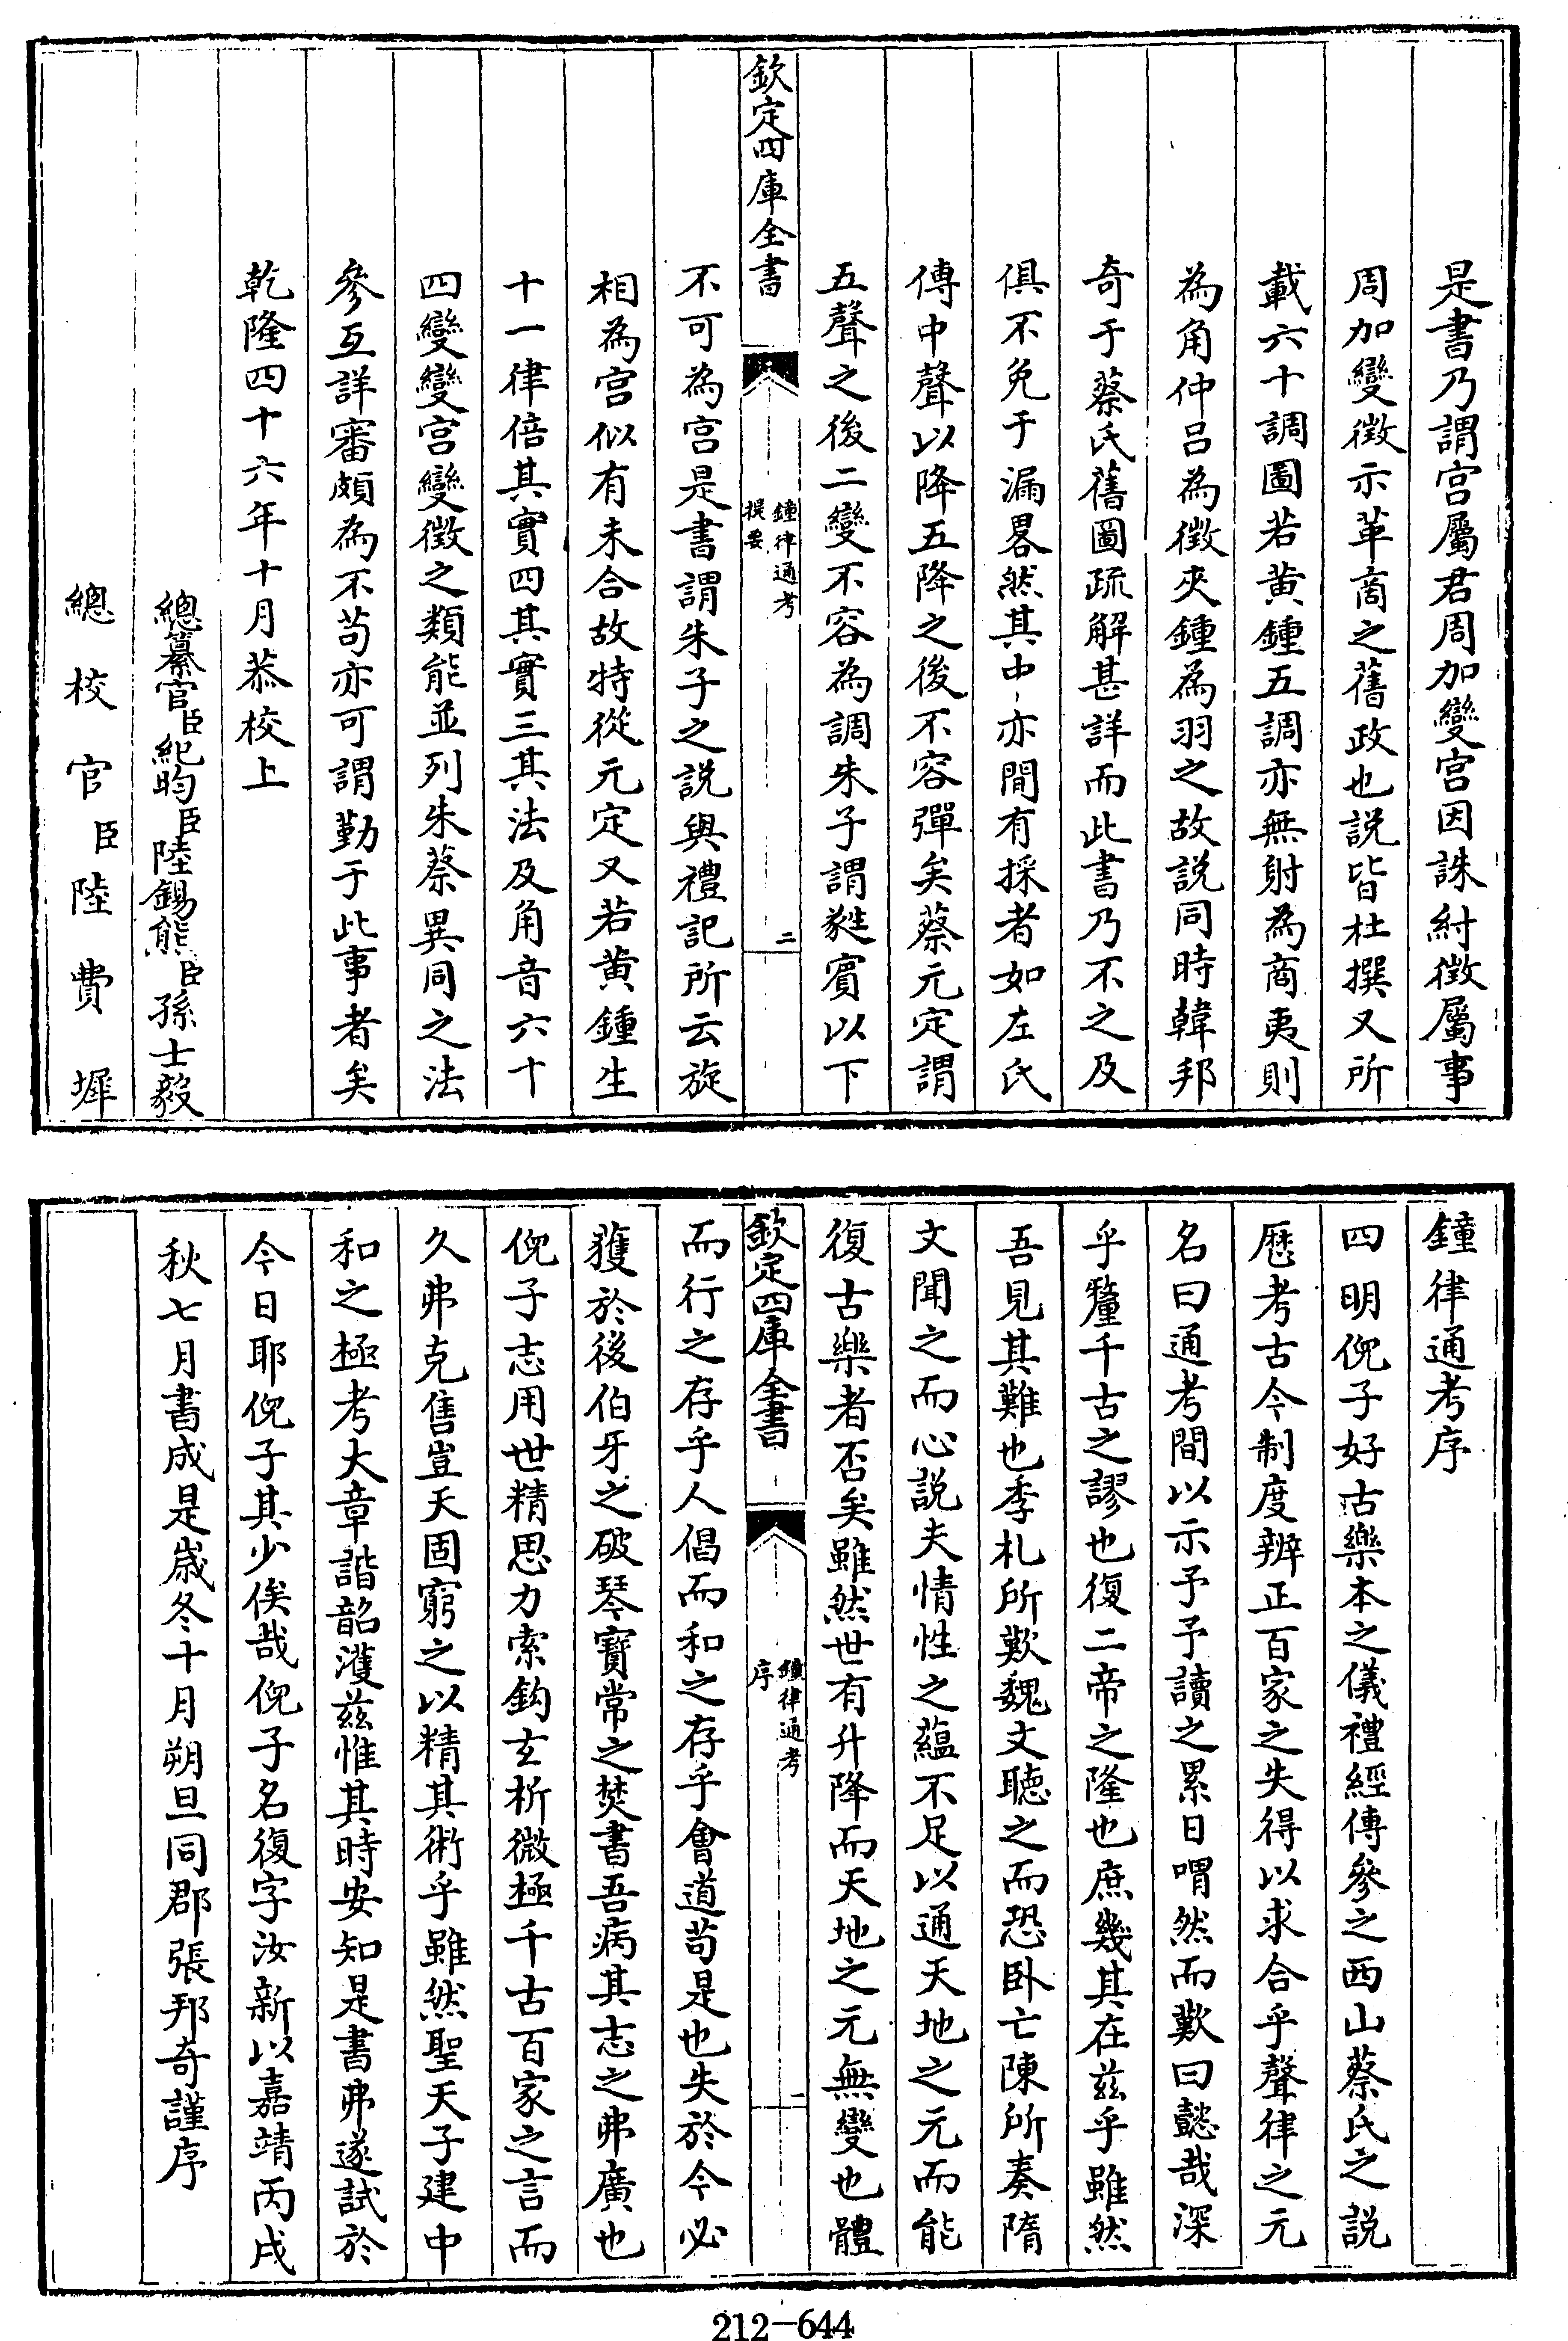 是書乃謂宫屬君周加變宫因誅紂徴屬事
周加變徴示革商之舊政也説皆杜撰又所
載六十調圖若黄鍾五調亦無射為商夷則
為角仲吕為徴夾鍾為羽之故説同時韓邦
奇于蔡氏舊圖疏解甚詳而此書乃不之及
俱不免于漏畧然其中亦間有採者如左氏
傳中聲以降五降之後不容彈矣蔡元定謂
五聲之後二變不容為調朱子謂蕤賓以下
欽定四庫全書
鐘律通考
提要
二
不可為宫是書謂朱子之説與禮記所云旋
相為宫似有未合故特從元定又若黄鍾生
十一律倍其實四其實三其法及角音六十
四變變宫變徴之類能並列朱蔡異同之法
參互詳審頗為不苟亦可謂勤于此事者矣
乾隆四十六年十月恭校上
總纂官臣紀昀臣陸錫熊臣孫士毅
總校官臣陸費墀
鐘律通考序
四明倪子好古樂本之儀禮經傳參之西山蔡氏之説
歴考古今制度辨正百家之失得以求合乎聲律之元
名曰通考間以示予予讀之累日喟然而歎曰懿哉深
乎釐千古之謬也復二帝之隆也庶幾其在兹乎雖然
吾見其難也季札所歎魏文聴之而恐卧亡陳所奏隋
文聞之而心説夫情性之蘊不足以通天地之元而能
復古樂者否矣雖然世有升降而天地之元無變也體
欽定四庫全書
鐘律通考
序
一
而行之存乎人倡而和之存乎會道苟是也失於今必
獲於後伯牙之破琴寳常之焚書吾病其志之弗廣也
倪子志用世精思力索鈎玄析微極千古百家之言而
久弗克售豈天固窮之以精其術乎雖然聖天子建中
和之極考大章諧韶濩兹惟其時安知是書弗遂試於
今日耶倪子其少俟哉倪子名復字汝新以嘉靖丙戌
秋七月書成是嵗冬十月朔旦同郡張邦奇謹序
212-644